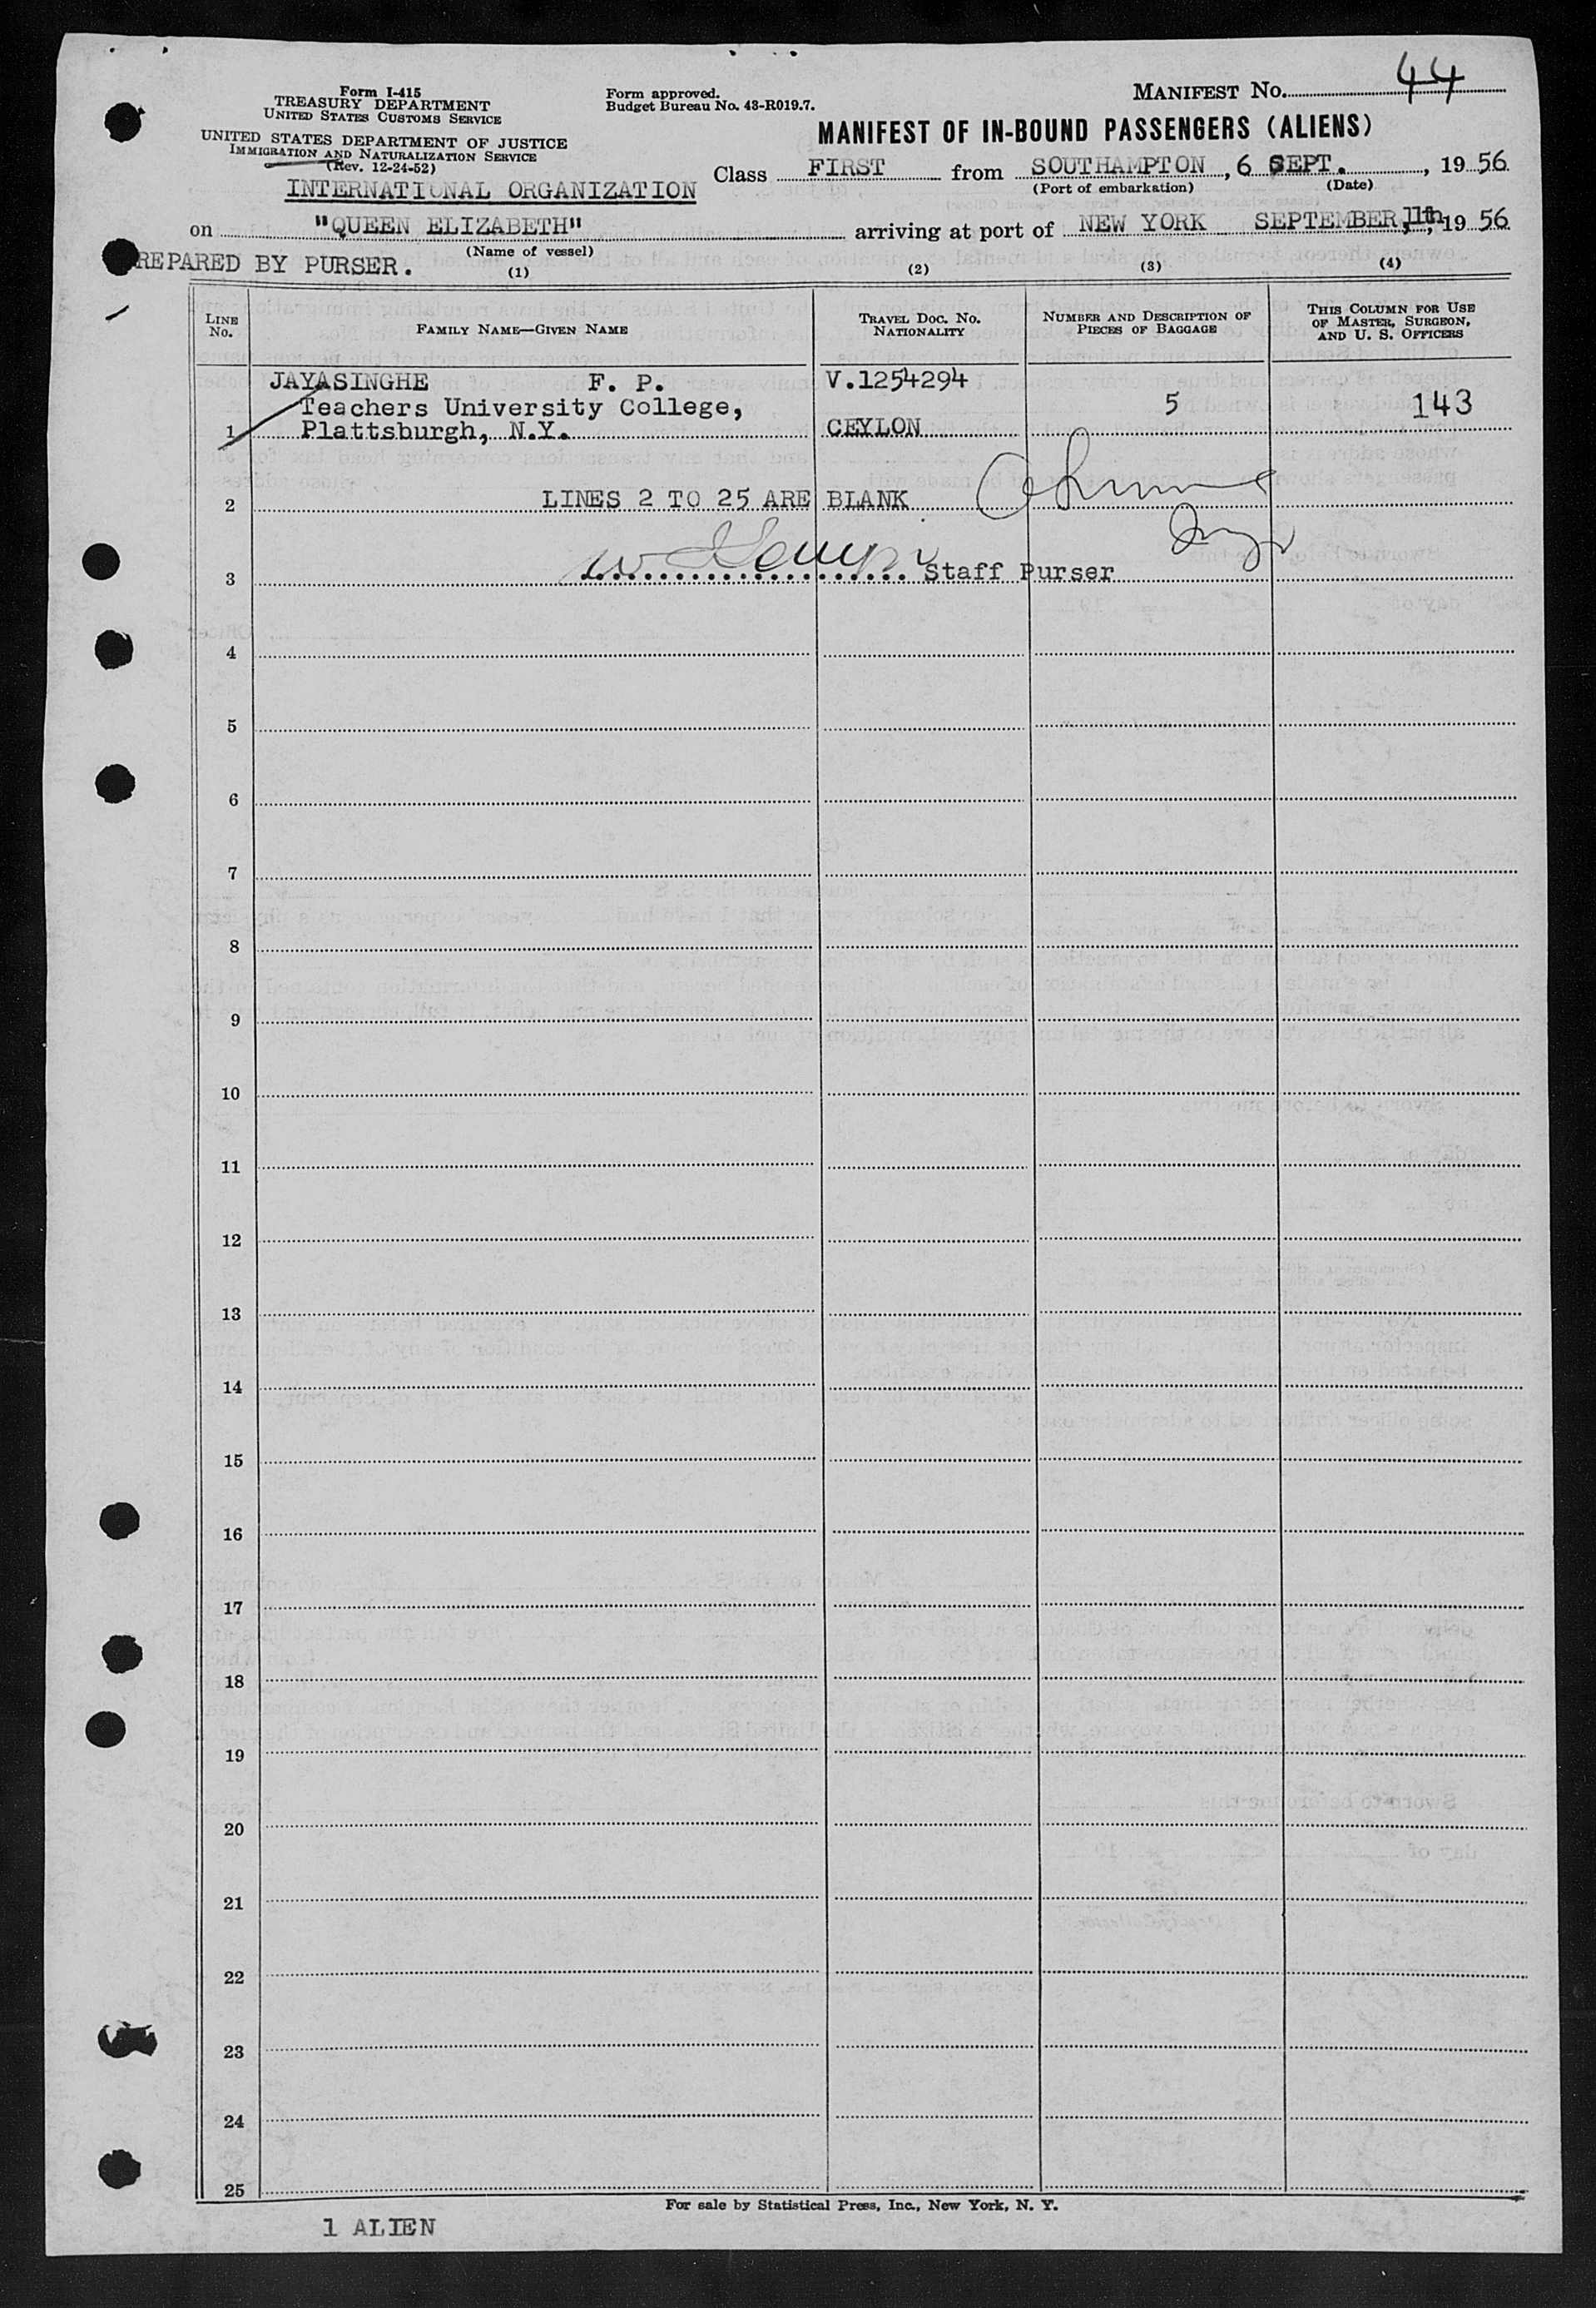 Form I-415
TREASURY DEPARTMENT
UNITED STATES CUSTOMS SERVICE
UNITED STATES DEPARTMENT OF JUSTICE
IMMIGRATION AND NATURALIZATION SERVICE
(Rev. 12-24-52)
INTERNATIONAL ORGANIZATION
Form approved.
Budget Bureau No. 43-R019.7.
MANIFEST No. 44
MANIFEST OF IN-BOUND PASSENGERS (ALIENS)
Class FIRST from SOUTHAMPTON, 6 SEPT., 19 56
(Port of embarkation) (Date)
on "QUEEN ELIZABETH" arriving at port of NEW YORK SEPTEMBER, 11th, 19 56
(Name of vessel)
REPARED BY PURSER.
(1) (2) (3) (4)
LINE No. FAMILY NAME—GIVEN NAME TRAVEL DOC. NO. NATIONALITY NUMBER AND DESCRIPTION OF PIECES OF BAGGAGE THIS COLUMN FOR USE OF MASTER, SURGEON, AND U. S. OFFICERS
JAYASINGHE F. P. V.1254294
Teachers University College, 5 143
1 Plattsburgh, N.Y. CEYLON
2 LINES 2 TO 25 ARE BLANK
3 Staff Purser
4
5
6
7
8
9
10
11
12
13
14
15
16
17
18
19
20
21
22
23
24
25
For sale by Statistical Press, Inc., New York, N. Y.
1 ALIEN